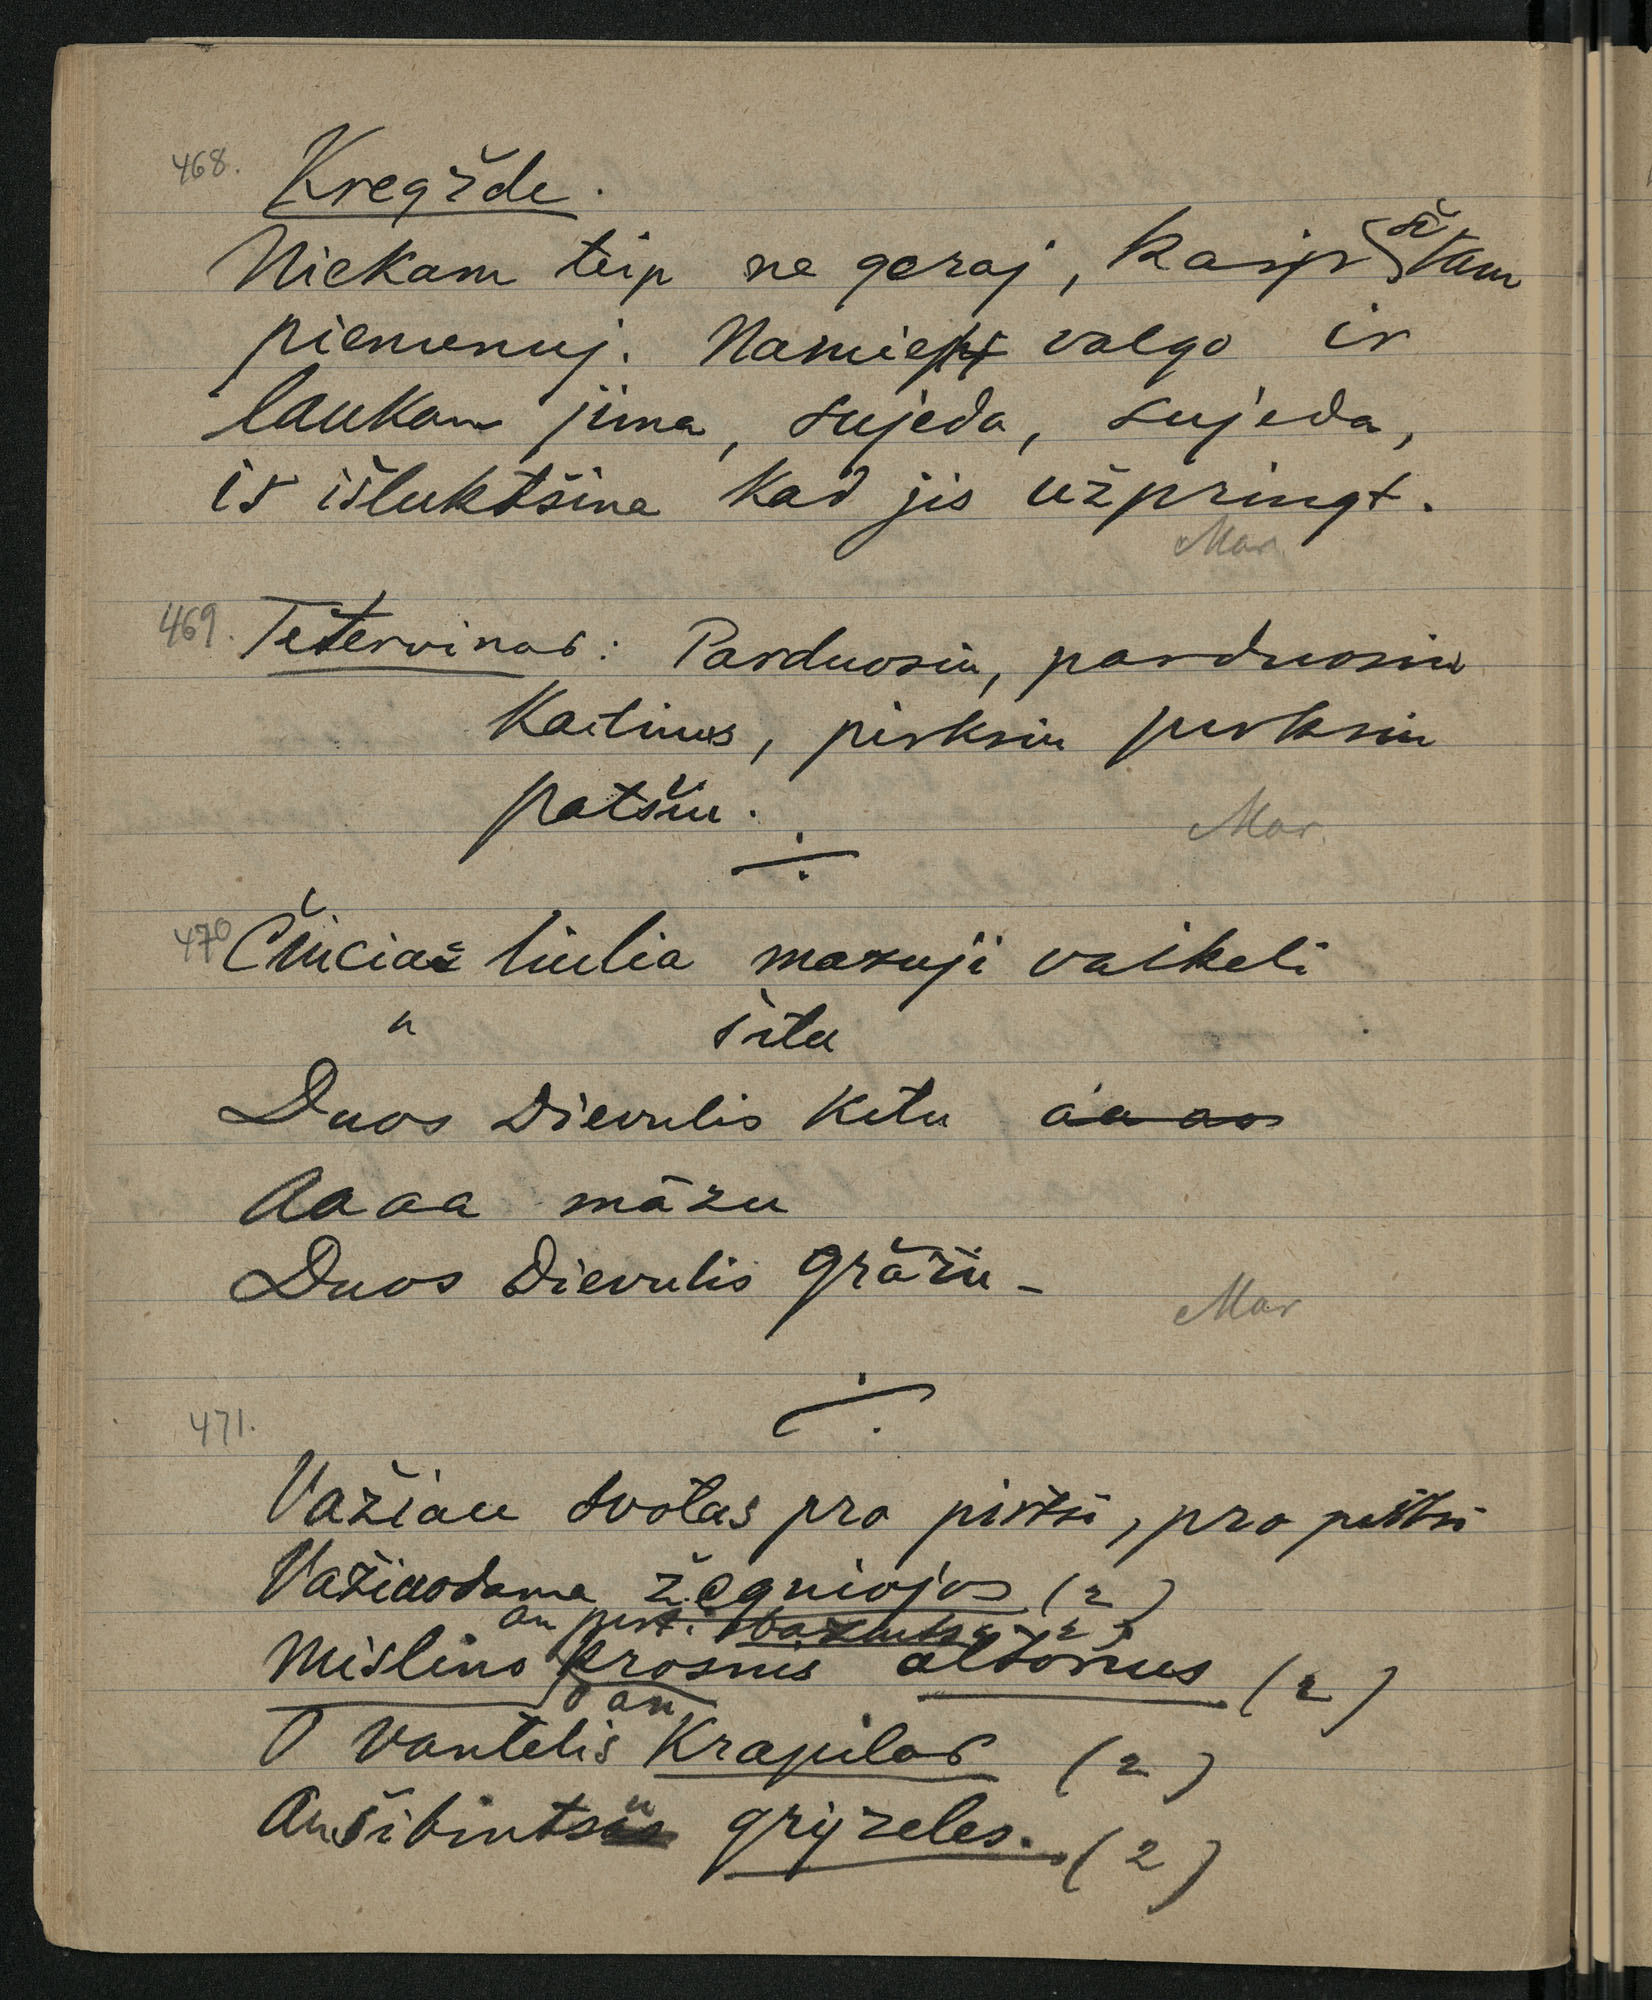 468. Kregžde.
Niekam teip ne geraj, kaip ši tam
piemenuj. Namie valgo ir
laukan jima, sujeda, sujeda,
ir išluktšina kad jis užpringt.
Mar.
469. Tetervinas: Parduosiu, parduosiu
Kailinus, pirksiu pirksiu
patšiu.
Mar.
470 Čiučia liulia mazuji vaikeli
" šitu
Duos Dievulis kitu a a a a
Aaaa mãzu
Duos Dievulis grãžiu -
Mar
471.
Važiau svotas pro pirtsi, pro pirtsi
Važiuodama žegniojos (2)
an pirt.
Mislino krosnis altorius (2)
O an
O vantelis Krapilas (2)
Anšibintsiu gryzeles. (2)